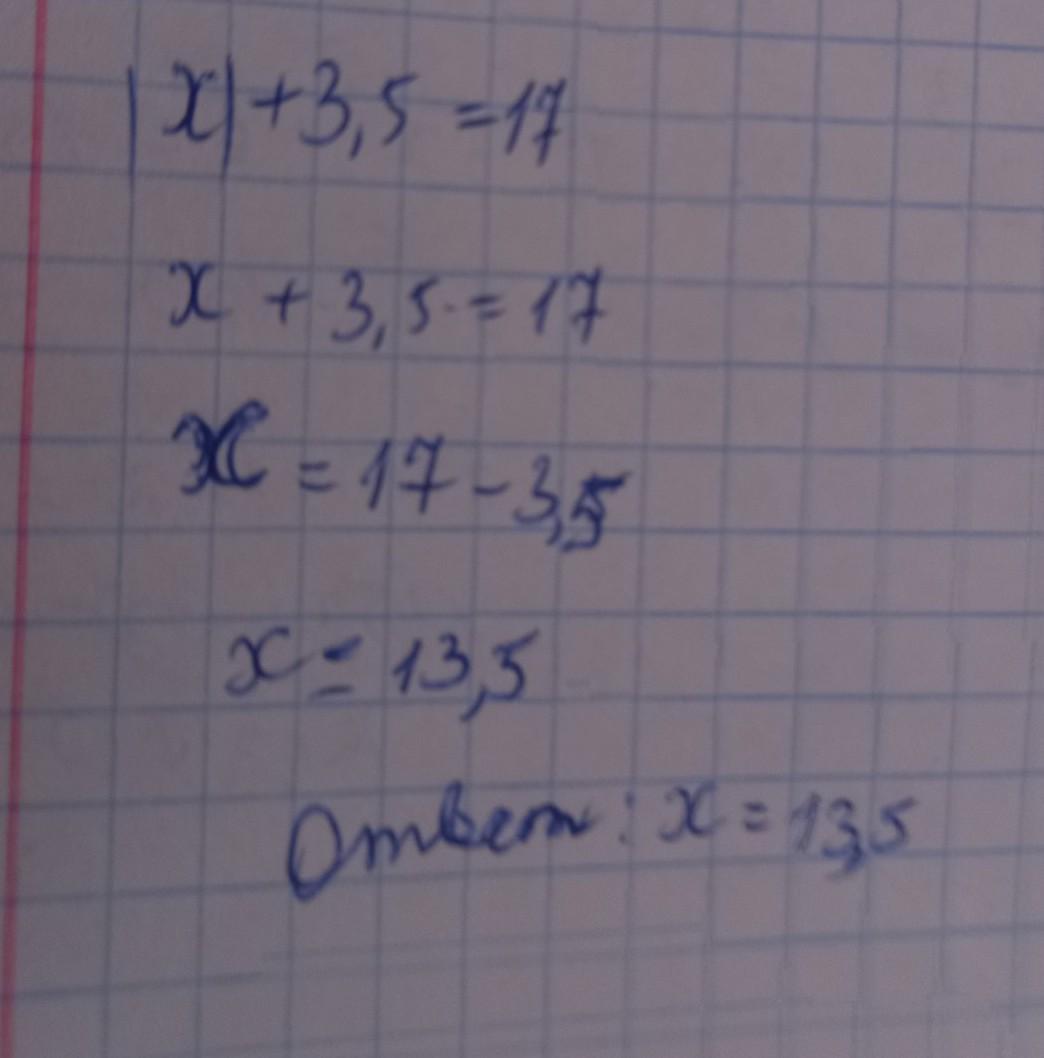 |x| + 3,5 = 17
x + 3,5 = 17
x = 17 - 3,5
x = 13,5
Ответ: x = 13,5